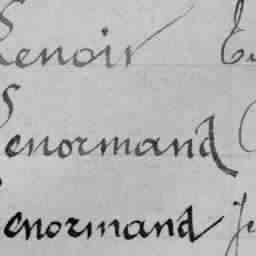 Lenoir
Lenormand
Lenormand